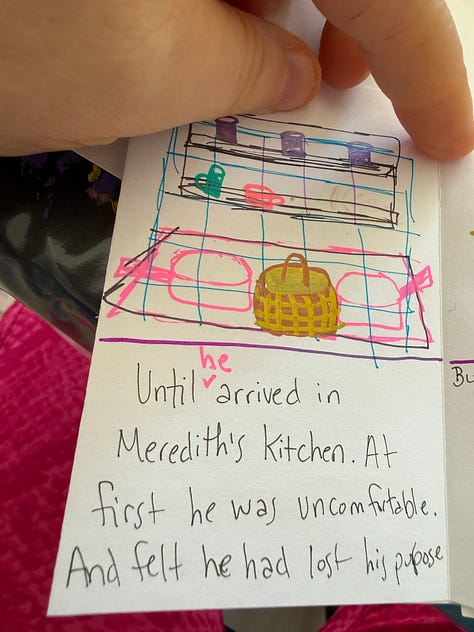 he
Until arrived in
Meredith's kitchen. At
first he was uncomfrtable.
And felt he had lost his pupose
Bu